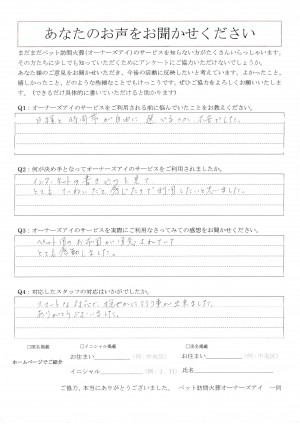 あなたのお声をお聞かせください
まだまだペット訪問火葬(オーナーズアイ)のサービスを知らない方がたくさんいらっしゃいます。
その方たちに少しでも知っていただくためにアンケートにご協力いただけないでしょうか。
あなた様のご意見をお聞かせいただき、今後の活動に反映したいと考えています。よかったこと、
嬉しかったこと、どのような些細なことでもけっこうです。ぜひご協力をよろしくお願いいたしま
す。(できるだけ具体的に書いていただけると助かります)
Q1：オーナーズアイのサービスをご利用される前に悩んでいたことをお教えください。
日程と時間帯が自由に選べるのか、不安でした。
Q2：何が決め手となってオーナーズアイのサービスをご利用されましたか。
インターネットの書き込みを見て
とてもていねいだと感じたので利用したいと思いました。
Q3：オーナーズアイのサービスを実際にご利用なさってみての感想をお聞かせください。
ペット用のお布団が用意されていて
とても感動しました。
Q4：対応したスタッフの対応はいかがでしたか。
スマートな対応で、穏やかに
事が出来ました。
ありがとうございました。
□匿名掲載 □イニシャル掲載 □実名掲載
ホームページでご紹介
お住まい (例：中央区) お住まい (例：中央区)
イニシャル (例：I．H) 氏名
ご協力、本当にありがとうございました。 ペット訪問火葬オーナーズアイ 一同